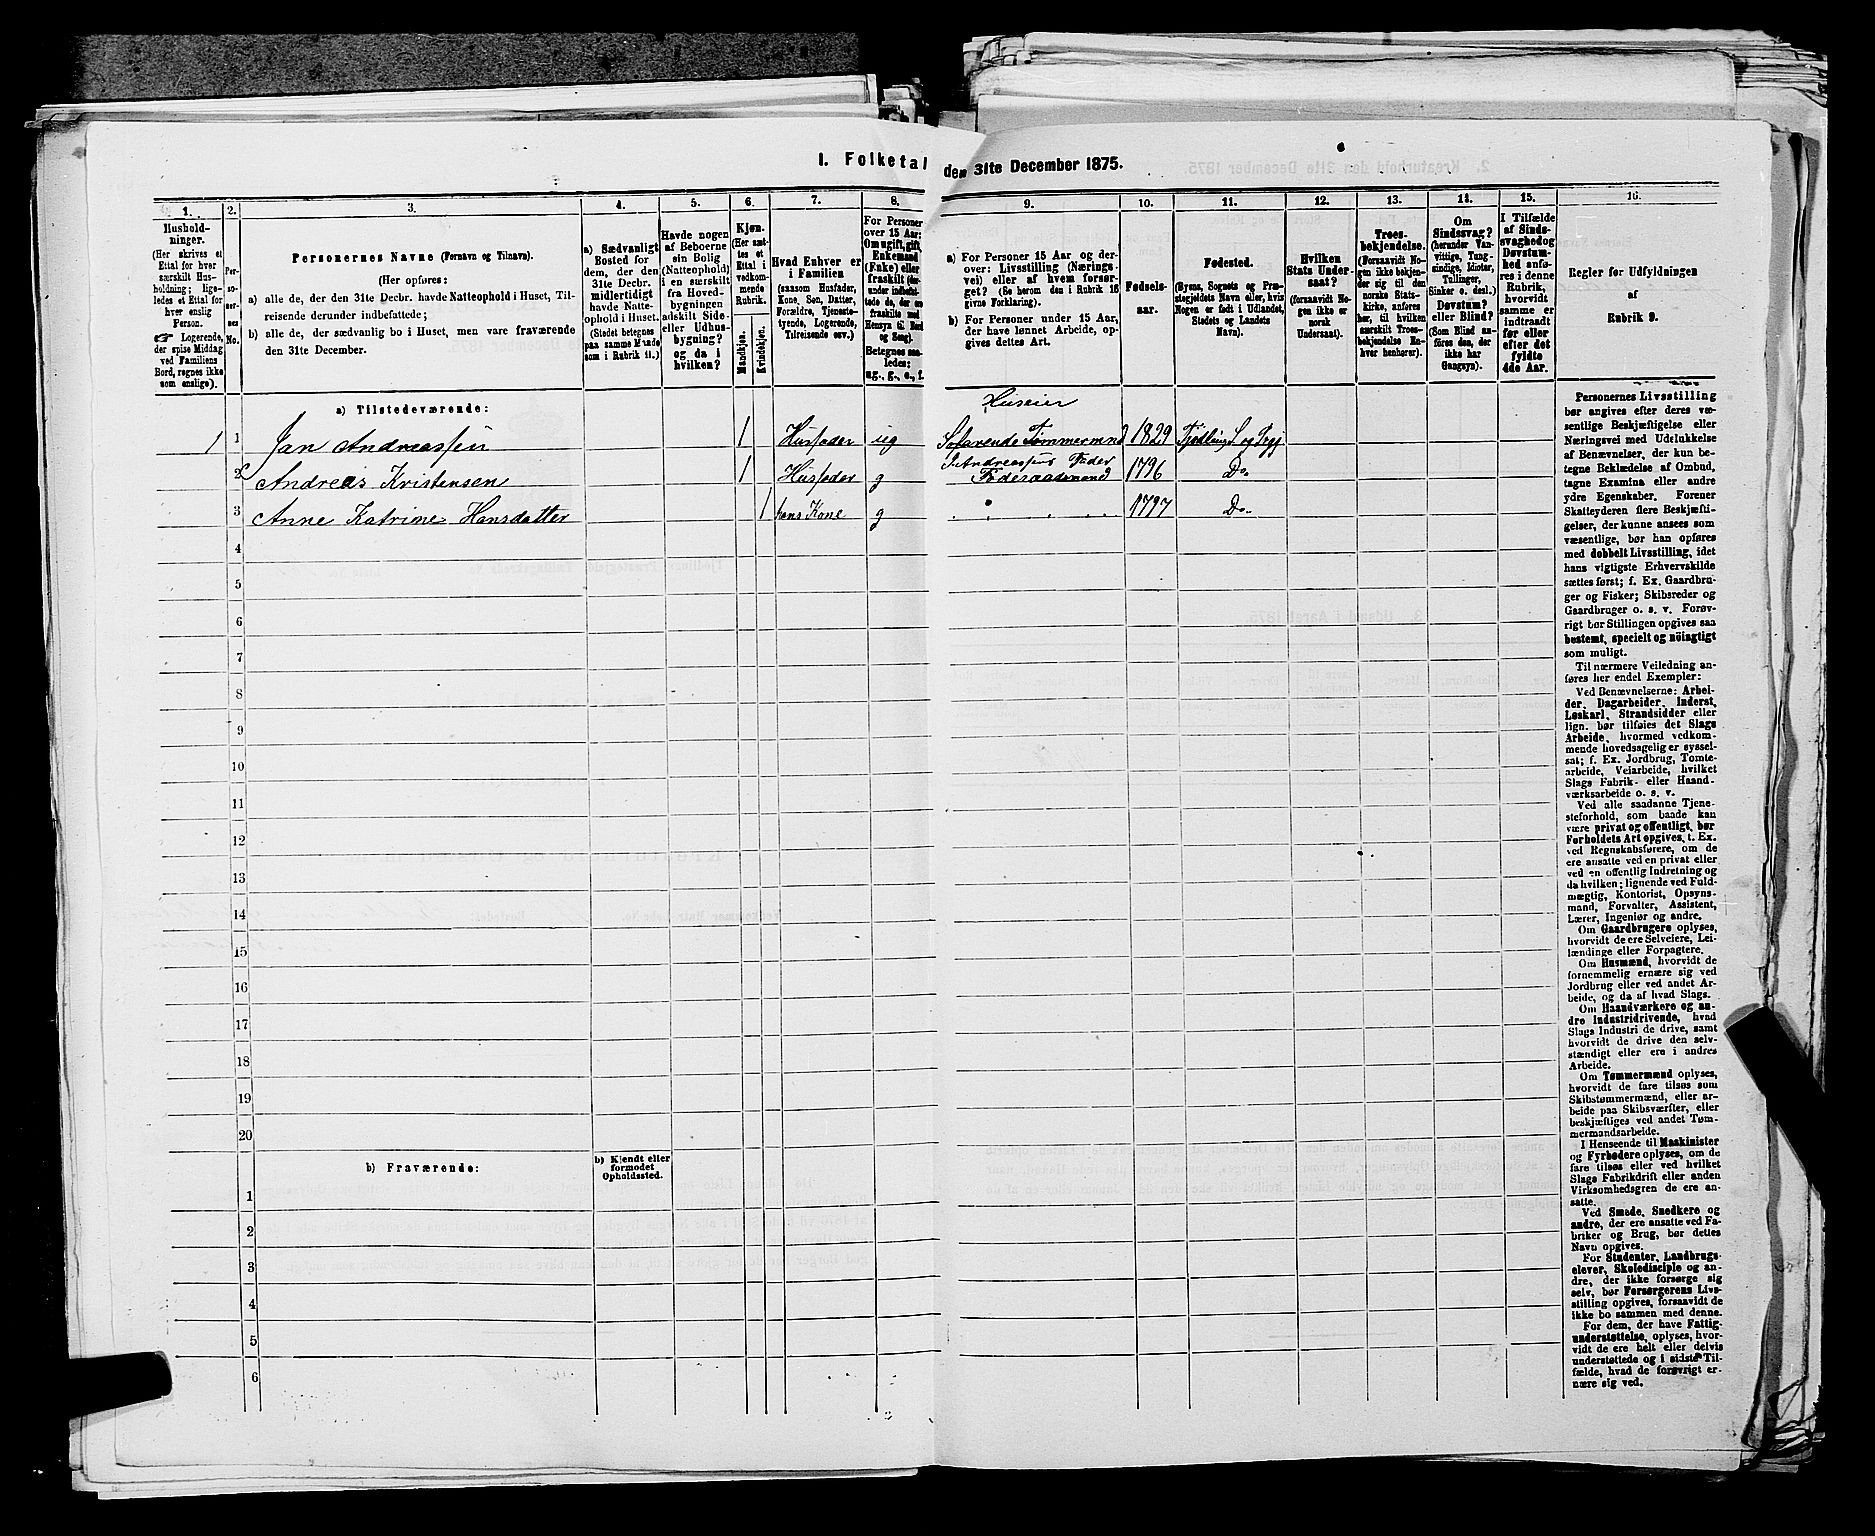 1. Folketal
den 31te December 1875.
1.
Husholdninger.
(Her skrives et
Ettal for hver
særskilt Husholdning; ligeledes
et Ettal for
hver enslig
Person.
☞ Logerende,
der spise Middag
ved Familiens
Bord, regnes ikke
som enslige).
2.
Personernes
No.
3.
Personernes Navne (Fornavn og Tilnavn).
(Her opføres:
a) alle de, der den 31te Decbr. havde Natteophold i Huset, Tilreisende
derunder indbefattede;
b) alle de, der sædvanlig bo i Huset, men vare fraværende
den 31te December.
4.
a) Sædvanligt
Bosted for
dem, der den
31te Decbr.
midlertidigt
havde Natteophold
i Huset.
(Stedet betegnes
paa samme Maade
som i Rubrik 11.)
5.
Havde nogen
af Beboerne
sin Bolig
(Natteophold)
i en særskilt
fra Hovedbygningen
adskilt Side-
eller Udhusbygning?
og da i
hvilken?
6.
Kjøn.
(Her sættes
et
Ettal i
vedkommende
Rubrik.
Mandkjøn.
Kvindekjøn.
7.
Hvad Enhver er
i Familien
(saasom Husfader,
Kone, Søn, Datter,
Forældre, Tjenestetyende,
Logerende,
Tilreisende osv.)
8.
For Personer
over 15 Aar:
Om ugift, gift,
Enkemand
(Enke) eller
fraskilt
Betegnes saaledes:
ug., g., e., f.
9.
a) For Personer 15 Aar og derover:
Livsstilling (Næringsvei)
eller af hvem forsørget?
(Se herom den i Rubrik 16
givne Forklaring).
b) For Personer under 15 Aar,
der have lønnet Arbeide, opgives
dettes Art.
10.
Fødselsaar.
11.
Fødested.
(Byens, Sognets og Præstegjeldets
Navn eller, hvis
Nogen er født i Udlandet,
Stedets og Landets
Navn).
12.
Hvilken
Stats Undersaat?
(forsaavidt Nogen
ikke er
norsk
Undersaat).
13.
Troesbekjendelse.
(Forsaavidt Nogen
ikke bekjender
sig til den
norske Statskirke,
anføres
her, til hvilken
særskilt Troesbekjendelse
Enhver
henhører).
14.
Om
Sindssvag?
(herunder Vanvittige,
Tungsindige,
Idioter,
Tullinger,
Sinker o. desl.)
Døvstum?
eller Blind?
(Som Blind anføres
den, der
ikke har
Gangsyn).
15.
I Tilfælde
af Sindssvaghed
og
Døvstumhed
anføres
i denne
Rubrik,
hvorvidt
samme er
indtraadt
før eller
efter det
fyldte
4de Aar.
16.
Regler for Udfyldningen
af
Rubrik 9.
a) Tilstedeværende:
Huseier
1 1 Jan Andreassen 1 Husfader ug Tømmermand 1829
2 Andreas Kristensen 1 Husfader g Fader Føderaadsmand 1796 Do.
3 Anne Katrine Hansdatter 1 hans Kone g 1797 Do.
4
5
6
7
8
9
10
11
12
13
14
15
16
17
18
19
20
b) Fraværende:
b) Kjendt eller
formodet
Opholdssted.
1
2
3
4
5
6
Personernes Livsstilling
bør angives efter deres væsentlige
Beskjæftigelse eller
Næringsvei med Udelukkelse
af Benævnelser, der kun betegne
Beklædelse af Ombud,
tagne Examina eller andre
ydre Egenskaber. Forener
Skatteyderen flere Beskjæftigelser,
der kunne ansees som
væsentlige, bør han opføres
med dobbelt Livsstilling, idet
hans vigtigste Erhvervskilde
sættes først; f. Ex. Gaardbruger
og Fisker; Skibsreder og
Gaardbruger o. s. v. Forøvrigt
bør Stillingen opgives saa
bestemt, specielt og nøiagtigt
som muligt.
Til nærmere Veiledning anføres
her endel Exempler:
Ved Benævnelserne: Arbeider,
Dagarbeider, Inderst,
Løskarl, Strandsidder eller
lign. bør tilføies det Slags
Arbeide, hvormed vedkommende
hovedsagelig er sysselsat;
f. Ex. Jordbrug, Tomtearbeide,
Veiarbeide, hvilket
Slags Fabrik- eller Haandværksarbeide
o. s. v.
Ved alle saadanne Tjenesteforhold,
som baade kan
være privat og offentligt, bør
Forholdets Art opgives, t. Ex.
ved Regnskabsførere, om de
ere ansatte ved en privat eller
ved en offentlig Indretning og
da hvilken; lignende ved Fuldmægtig,
Kontorist, Opsynsmand,
Forvalter, Assistent,
Lærer, Ingeniør og andre.
Om Gaardbrugere oplyses,
hvorvidt de ere Selveiere, Leilændinge
eller Forpagtere.
Om Husmænd, hvorvidt de
fornemmelig ernære sig ved
Jordbrug eller ved andet Arbeide,
og da af hvad Slags.
Om Haandværkere og andre
Industridrivende, hvad
Slags Industri de drive, samt
hvorvidt de drive den selvstændigt
eller ere i andres
Arbeide.
Om Tømmermænd oplyses,
hvorvidt de fare tilsøs som
Skibstømmermænd, eller arbeide
paa Skibsværfter, eller
beskjæftiges ved andet Tømmermandsarbeide.
I Henseende til Maskinister
og Fyrbødere oplyses, om de
fare tilsøs eller ved hvilket
Slags Fabrikdrift eller anden
Virksomhedsgren de ere ansatte.
Ved Smede, Snedkere og
andre, der ere ansatte ved Fabriker
og Brug, bør dettes
Navn opgives.
For Studenter, Landbrugselever,
Skoledisciple og andre,
der ikke forsørge sig
selv, bør Forsørgerens Livsstilling
opgives, forsaavidt de
ikke bo sammen med denne.
For dem, der have Fattigunderstøttelse,
oplyses, hvorvidt
de ere helt eller delvis
understøttede og i sidste Tilfælde,
hvad de forøvrigt ernære
sig ved.